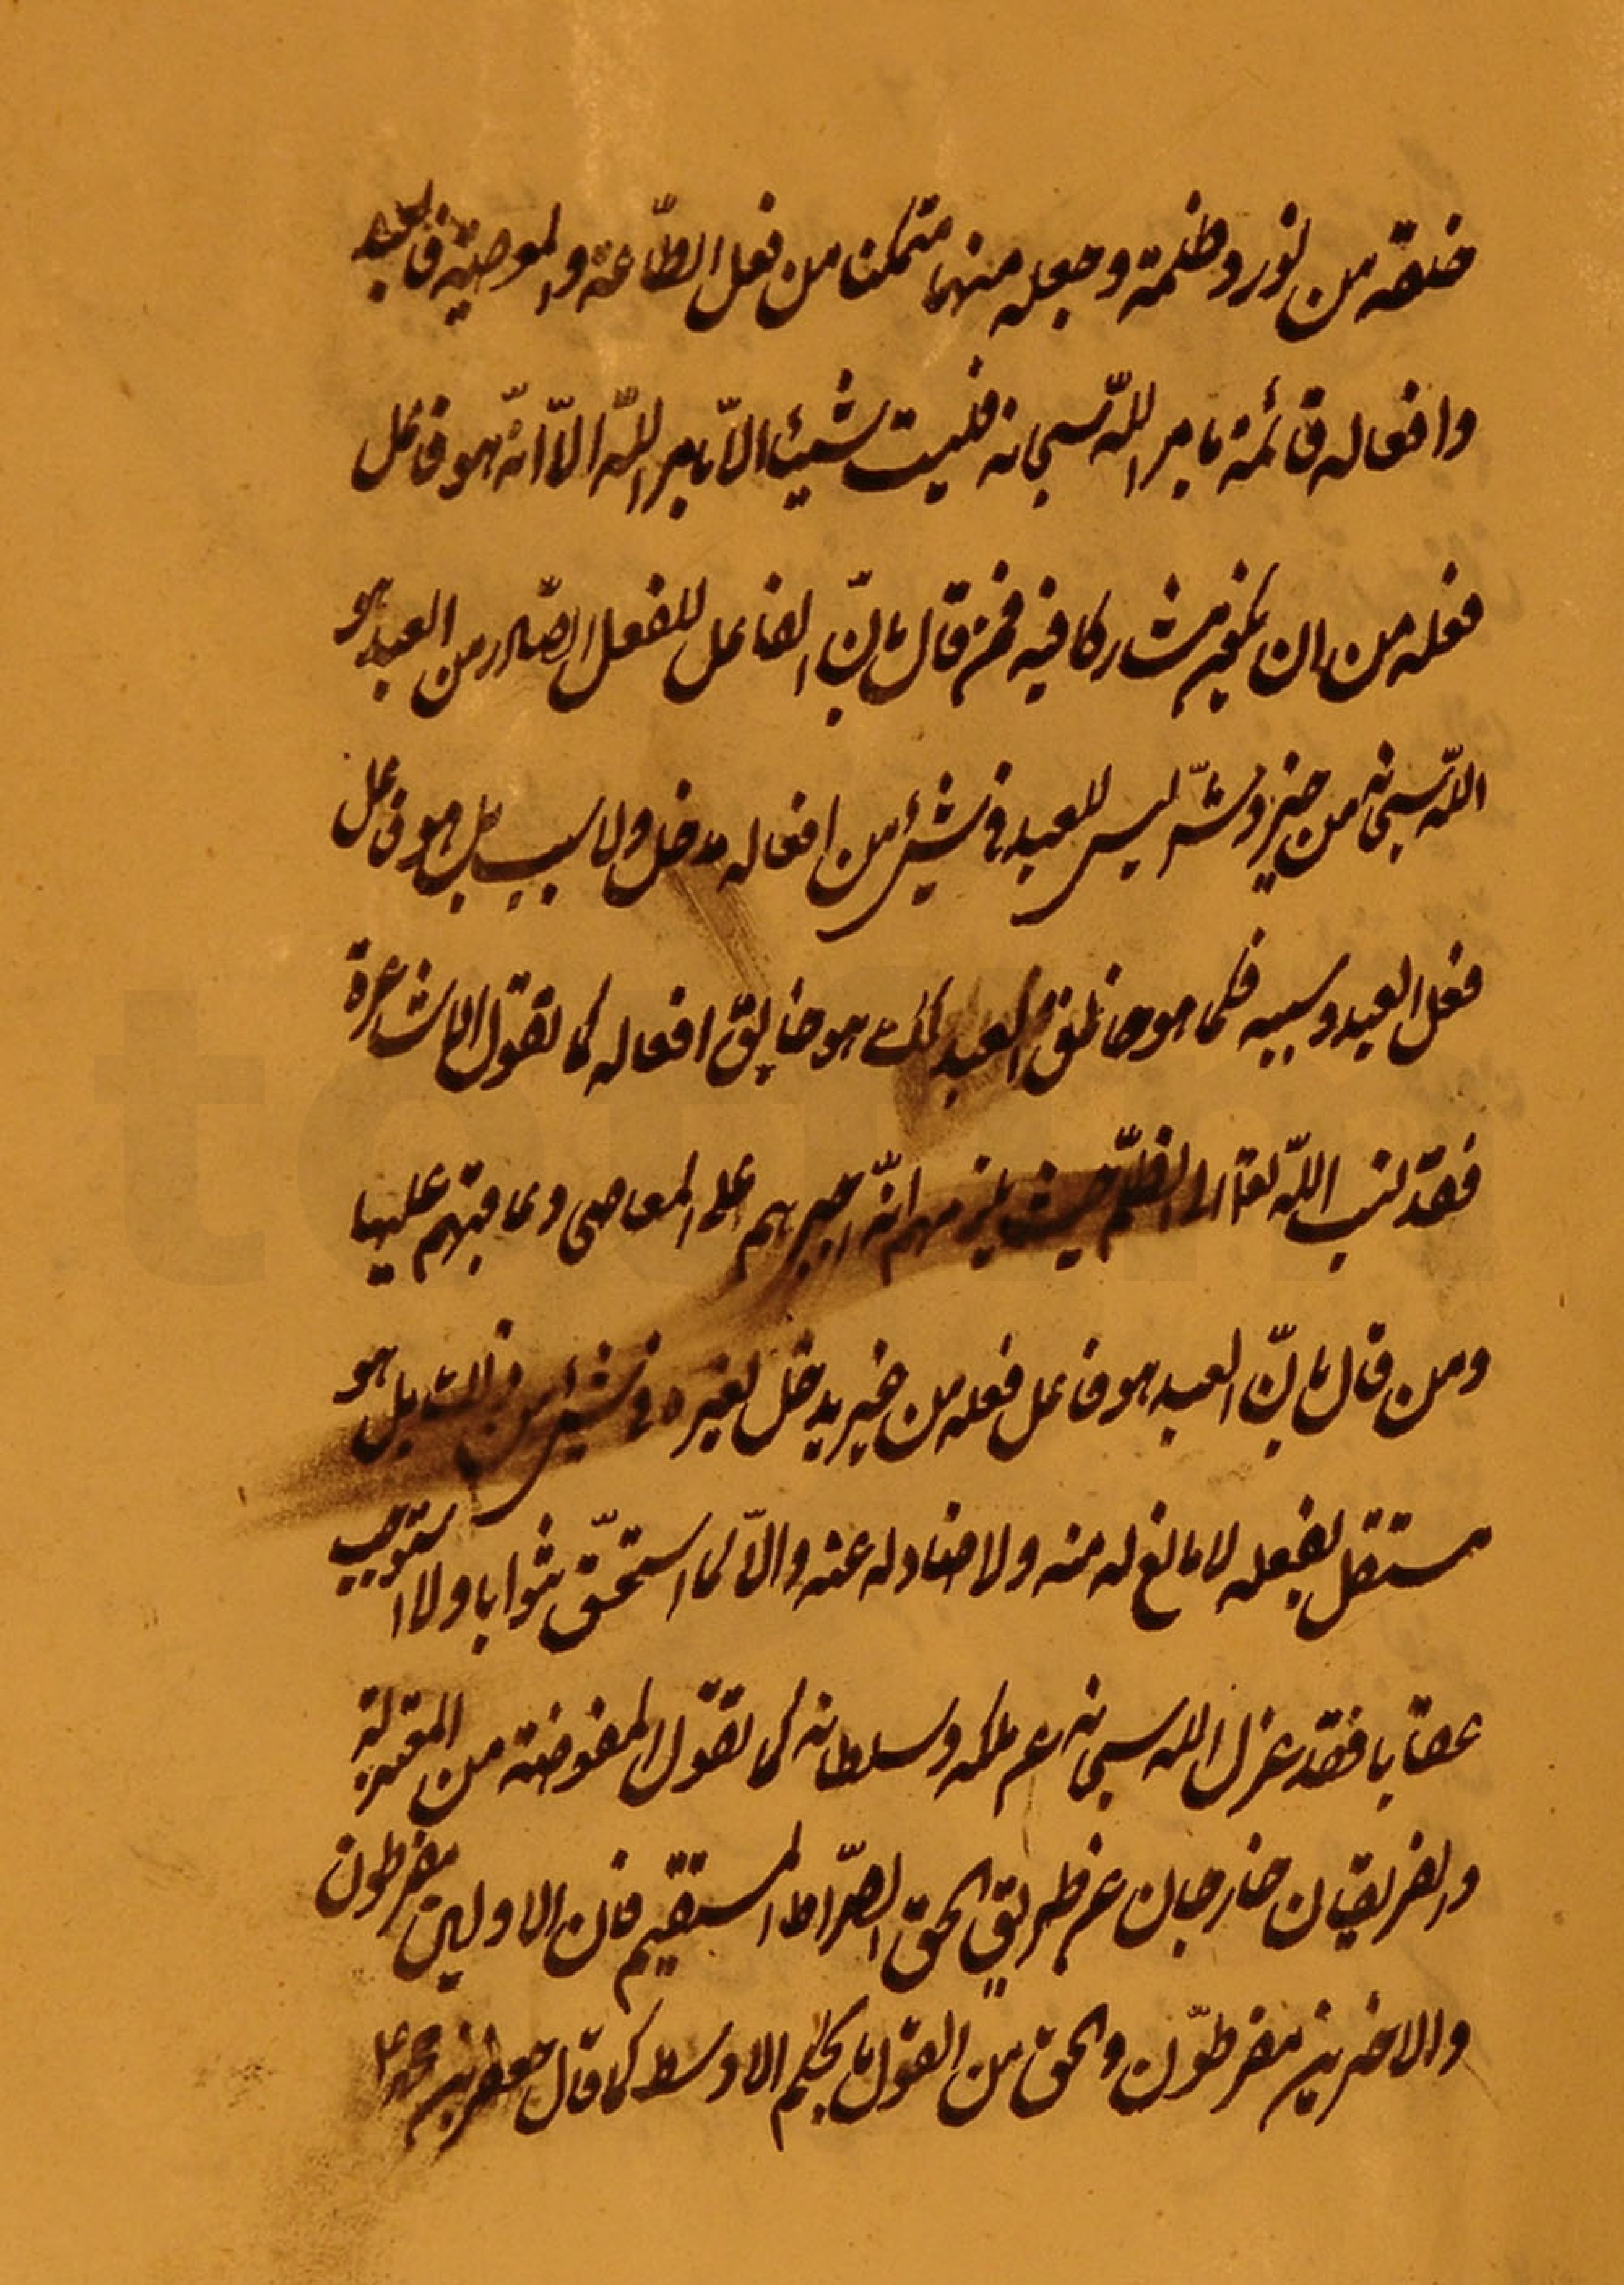 خلقه من نور وظلمة وجعله منهما متمكنا من فعل الطّاعة والمعصية فالعبد
وافعاله قائمة بامر اللّه سبحانه فليست شيئا الاّ بامر اللّه الاّ انّه هو فاعل
فعله من ان يكون مشاركا فيه فمن قال بانّ الفاعل للفعل الصّادر من العبد هو
اللّه سبحانه من خير وشرّ ليس للعبد في شيء من افعاله مدخل ولا سبب بل هو فاعل
فعل العبد وسببه فكما هو خالق العبد كك هو خالق افعاله كما تقول الاشاعرة
فقد نسب اللّه تعالى الى الظلم حيث يلزمهم انّه اجبرهم على المعاصي وعاقبهم عليها
ومن قال بانّ العبد هو فاعل فعله من غير مدخل لغيره في شيء من ذلك بل هو
مستقل بفعله لا مانع له منه ولا صادّ له عنه والاّ لما استحقّ ثوابا ولا استوجب
عقابا فقد عزل اللّه سبحانه عن ملكه وسلطانه كما تقول المفوضة من المعتزلة
والفريقان خارجان عن طريق الحق الصّراط المستقيم فان الاولين مفرطون
والاخرين مفرطّون والحق من القول بالحكم الاوسط كما قال جعفر بن محمد ع